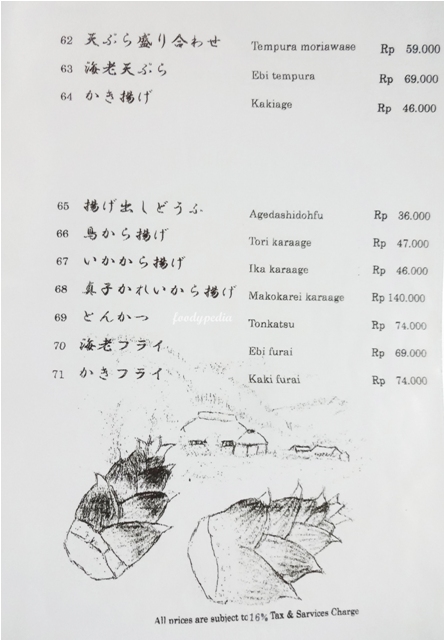 62 天ぷら盛り合わせ Tempura moriawase Rp 59.000
63 海老天ぷら Ebi tempura Rp 69.000
64 かき揚げ Kakiage Rp 46.000
65 揚げ出しどうふ Agedashidohfu Rp 36.000
66 鳥から揚げ Tori karaage Rp 47.000
67 いかから揚げ Ika karaage Rp 46.000
68 真子かれいから揚げ Makokarei karaage Rp 140.000
69 とんかつ Tonkatsu Rp 74.000
foodypedia
70 海老フライ Ebi furai Rp 69.000
71 かきフライ Kaki furai Rp 74.000
All prices are subject to 16% Tax & Sarvices Charge